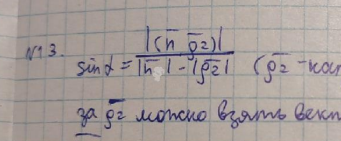 №3. sinα = |(n̅, ρ̅₂)| / |n̅| · |ρ̅₂| (ρ̅₂ - нап
за ρ̅₂ можно взять вект